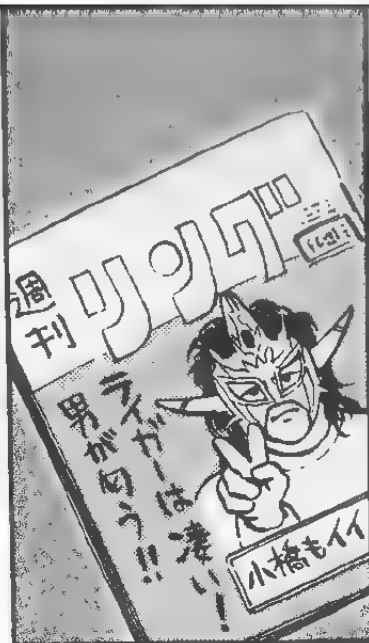 週刊
リング
ライガーは凄い!
男が匂う!!
小橋もイイ